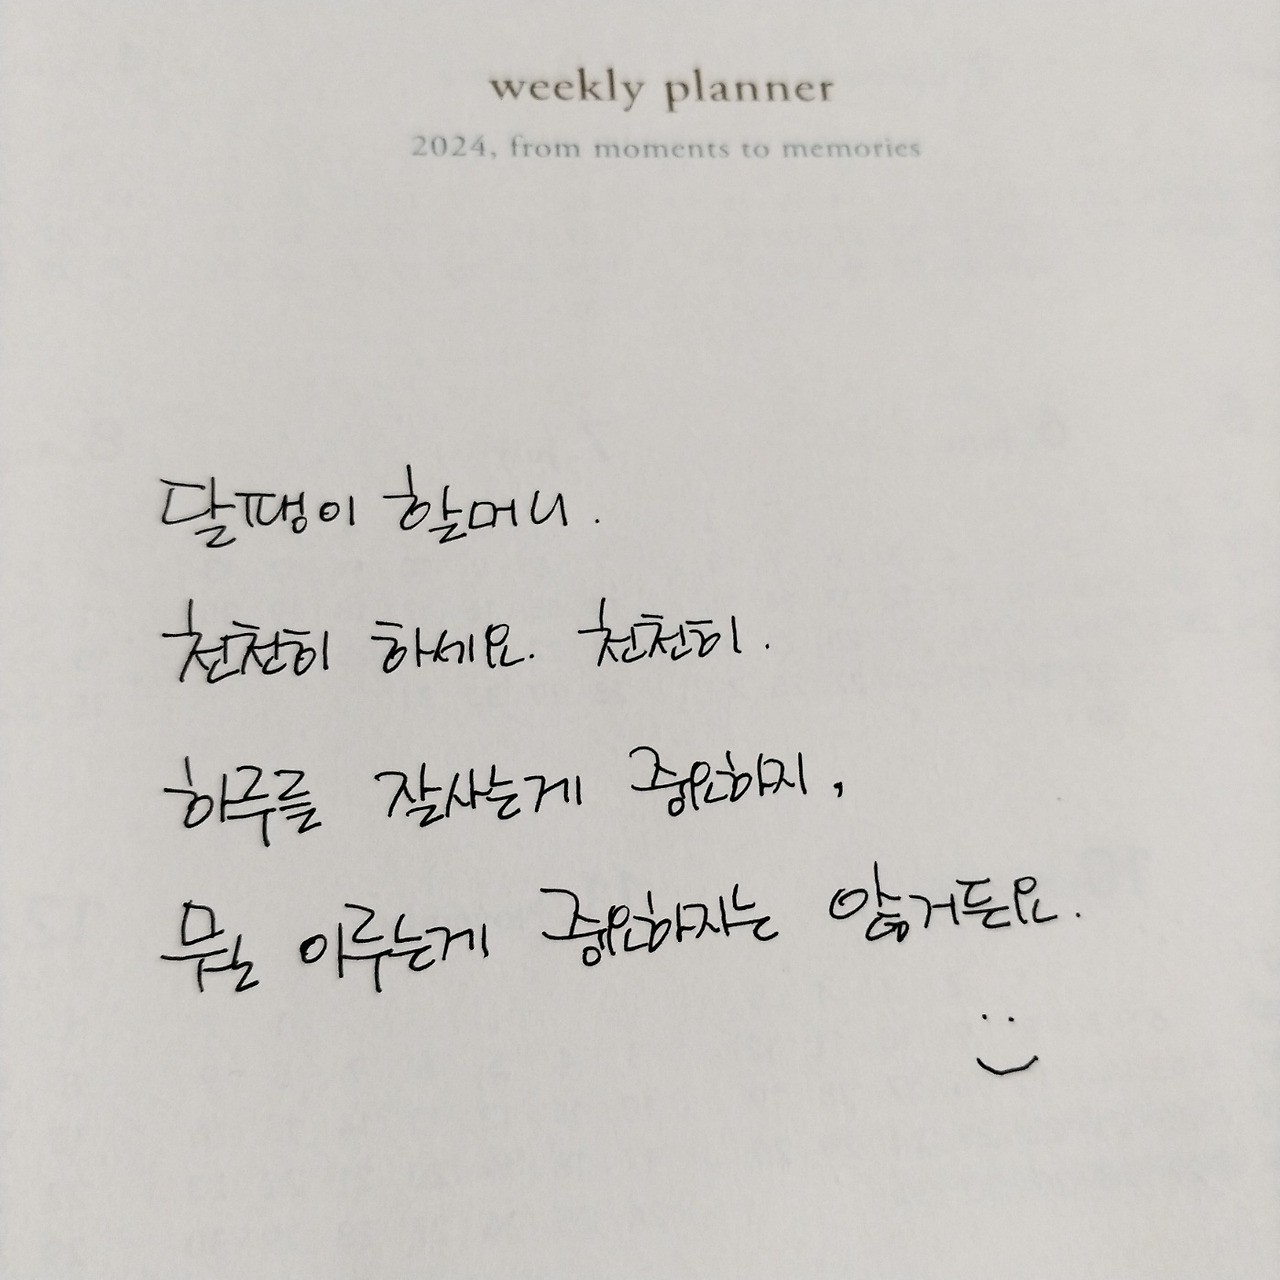 weekly planner
2024, from moments to memories
달팽이 할머니.
천천히 하세요. 천천히.
하루를 잘사는게 중요하지,
무얼 이루는게 중요하지는 않거든요.